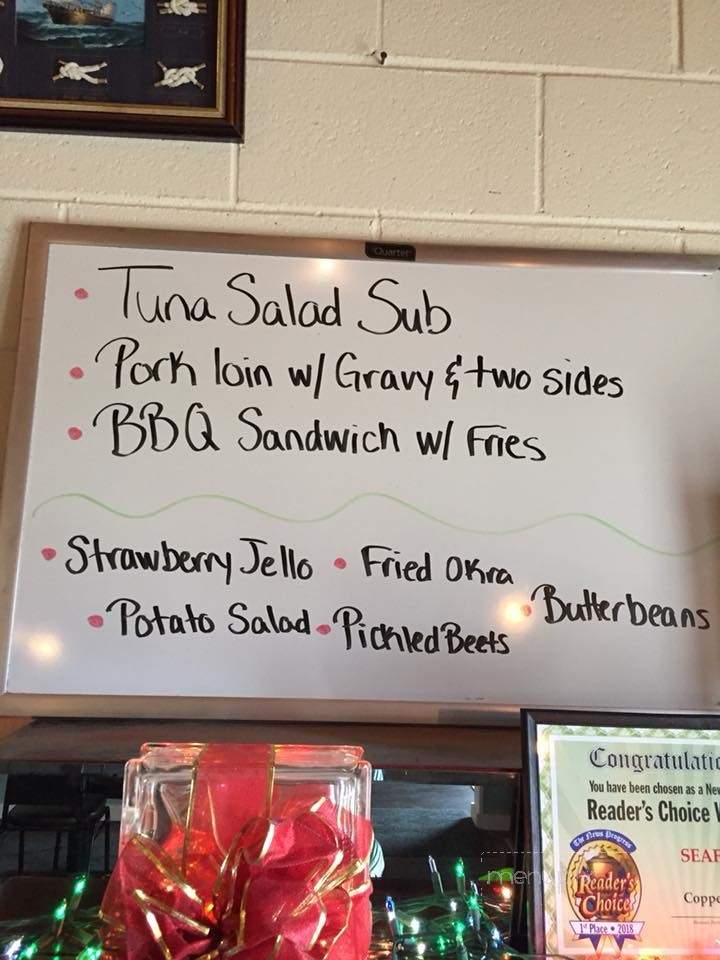 Quartet
• Tuna Salad Sub
• Pork loin w/ Gravy & two sides
• BBQ Sandwich w/ Fries
• Strawberry Jello • Fried Okra
• Butterbeans
• Potato Salad • Pickled Beets
Congratulatio
You have been chosen as a New
Reader's Choice W
The News Progress
SEAF
Reader's
Choice
Coppe
1st Place • 2018
men